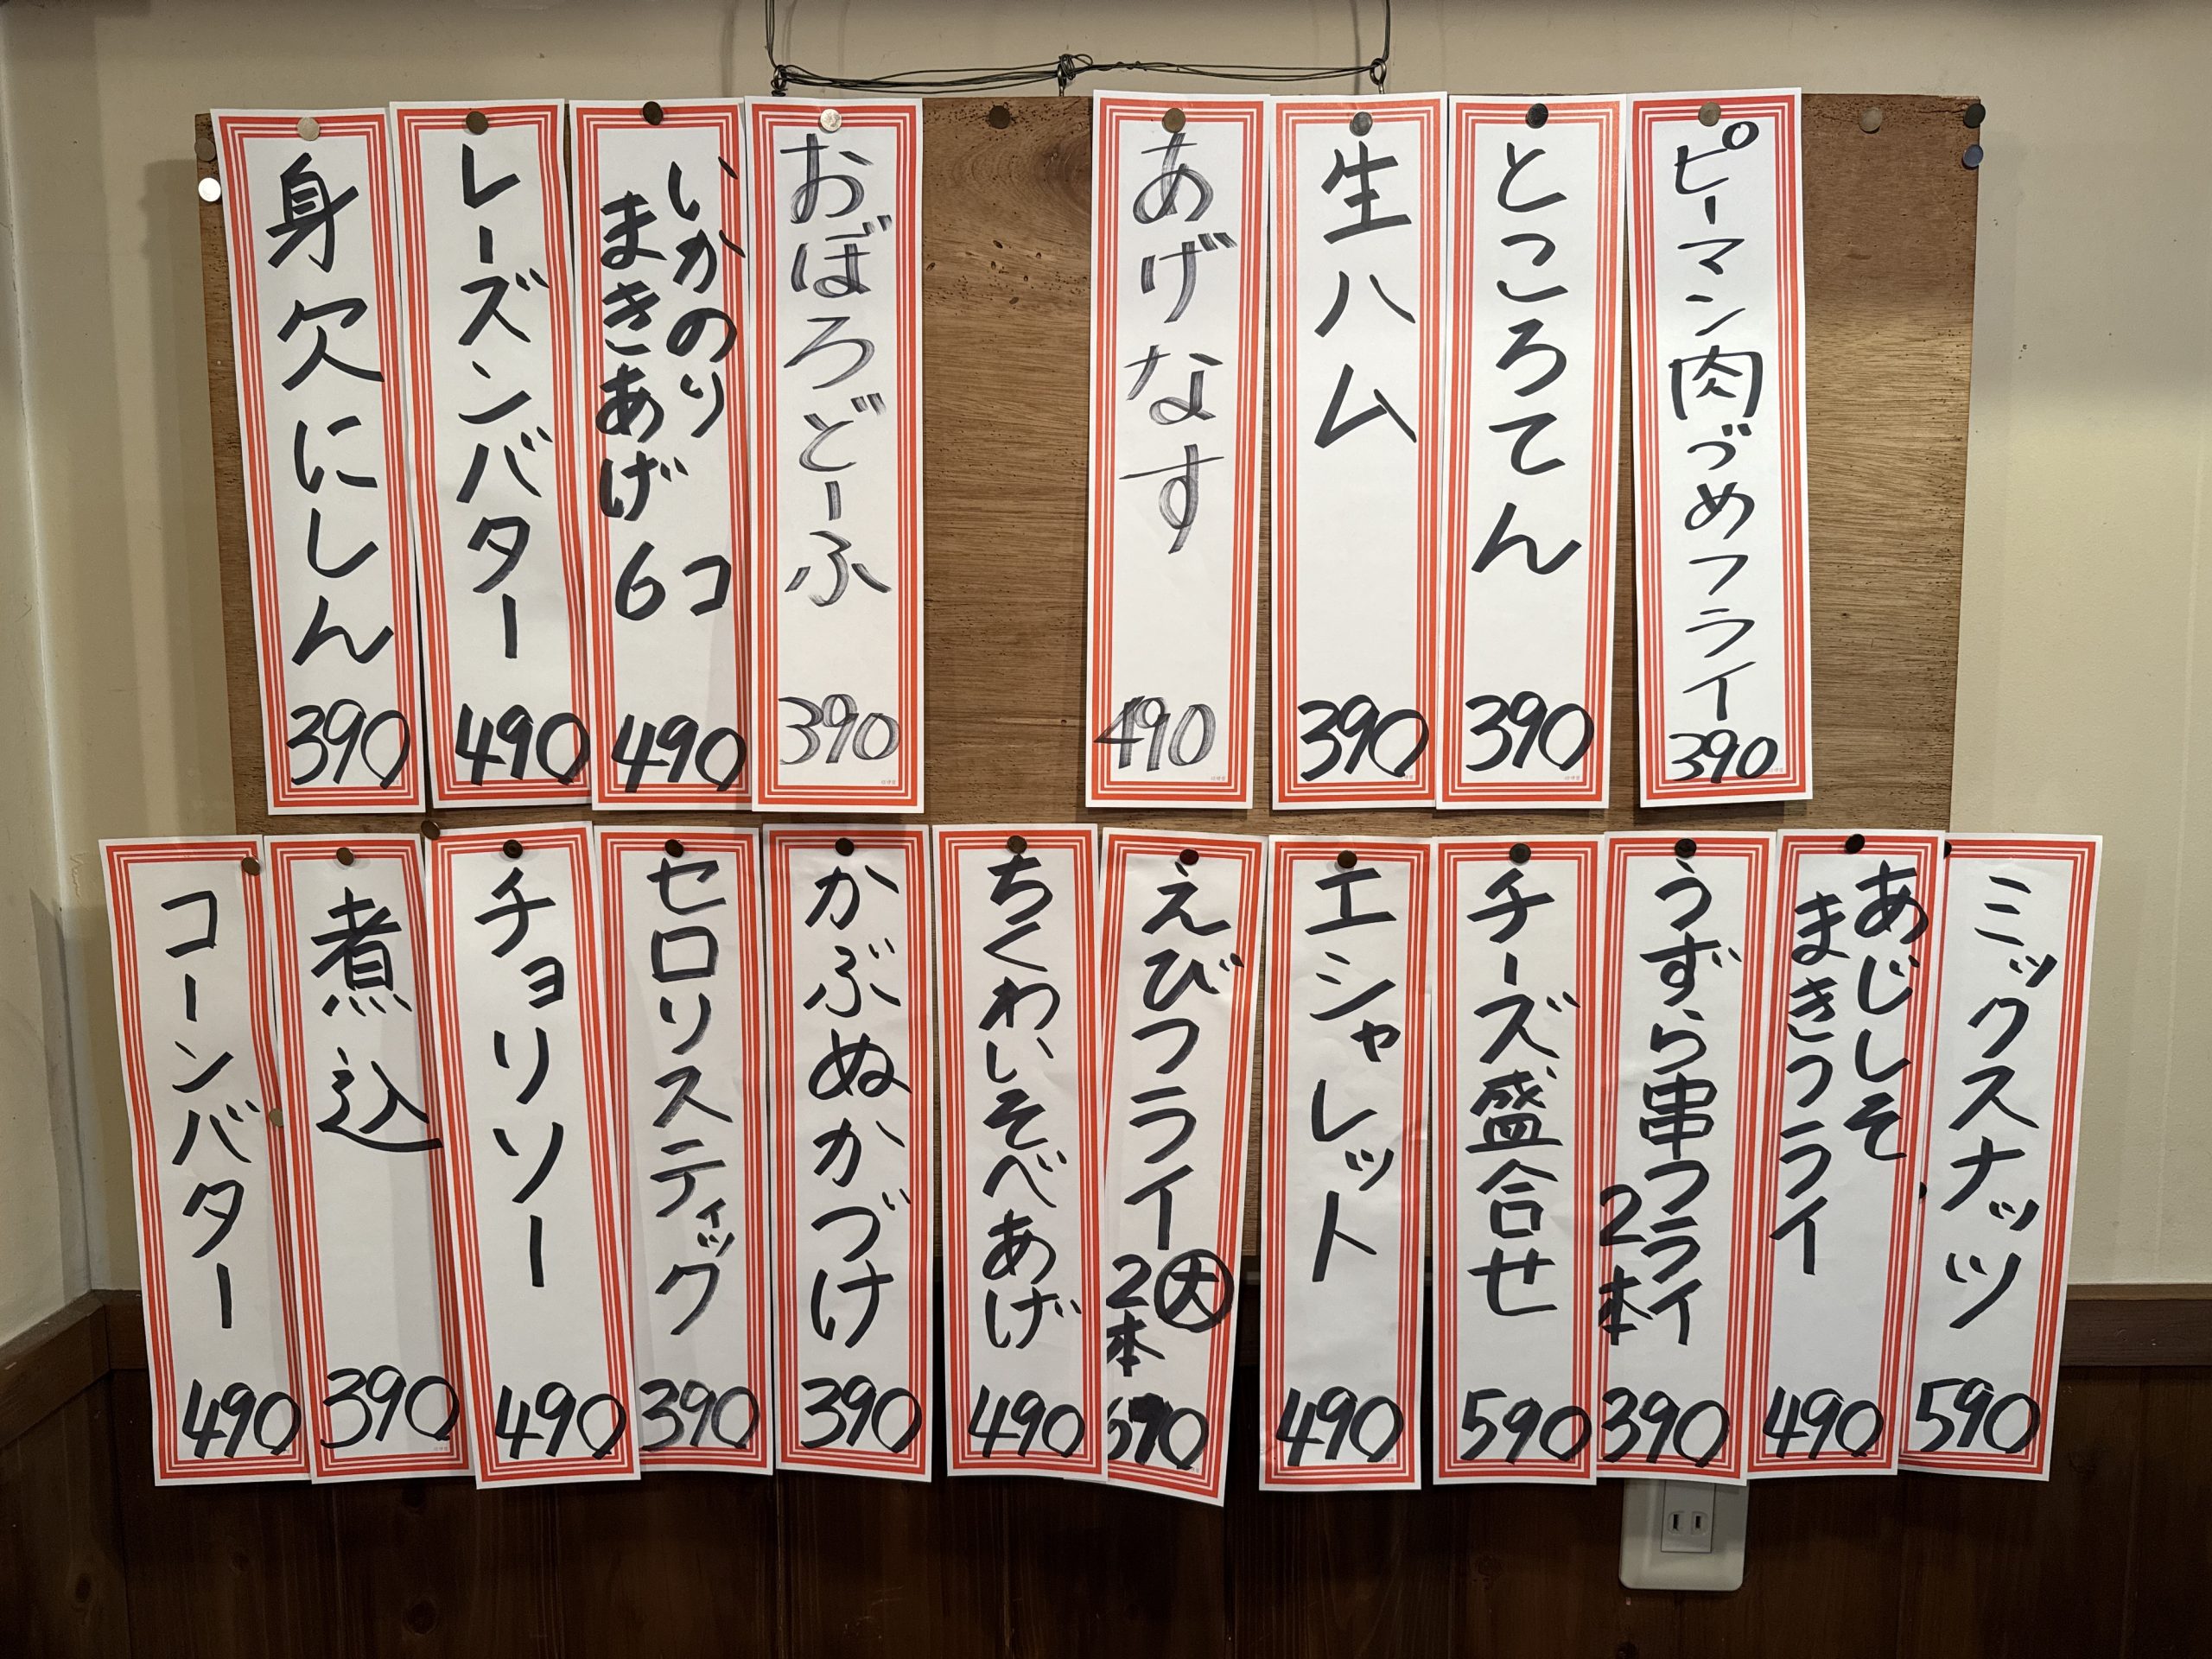 ピーマン肉づめフライ
390
ところてん
390
生ハム
390
あげなす
490
おぼろどーふ
390
いかのり
まきあげ
6コ
490
レーズンバター
490
身欠にしん
390
ミックスナッツ
590
あじしそ
まきフライ
490
うずら串フライ
2本
390
チーズ盛合せ
590
エシャレット
490
えびフライ大
2本
ちくわいそべあげ
490
かぶぬかづけ
390
セロリスティック
390
チョリソー
490
煮込
390
コーンバター
490